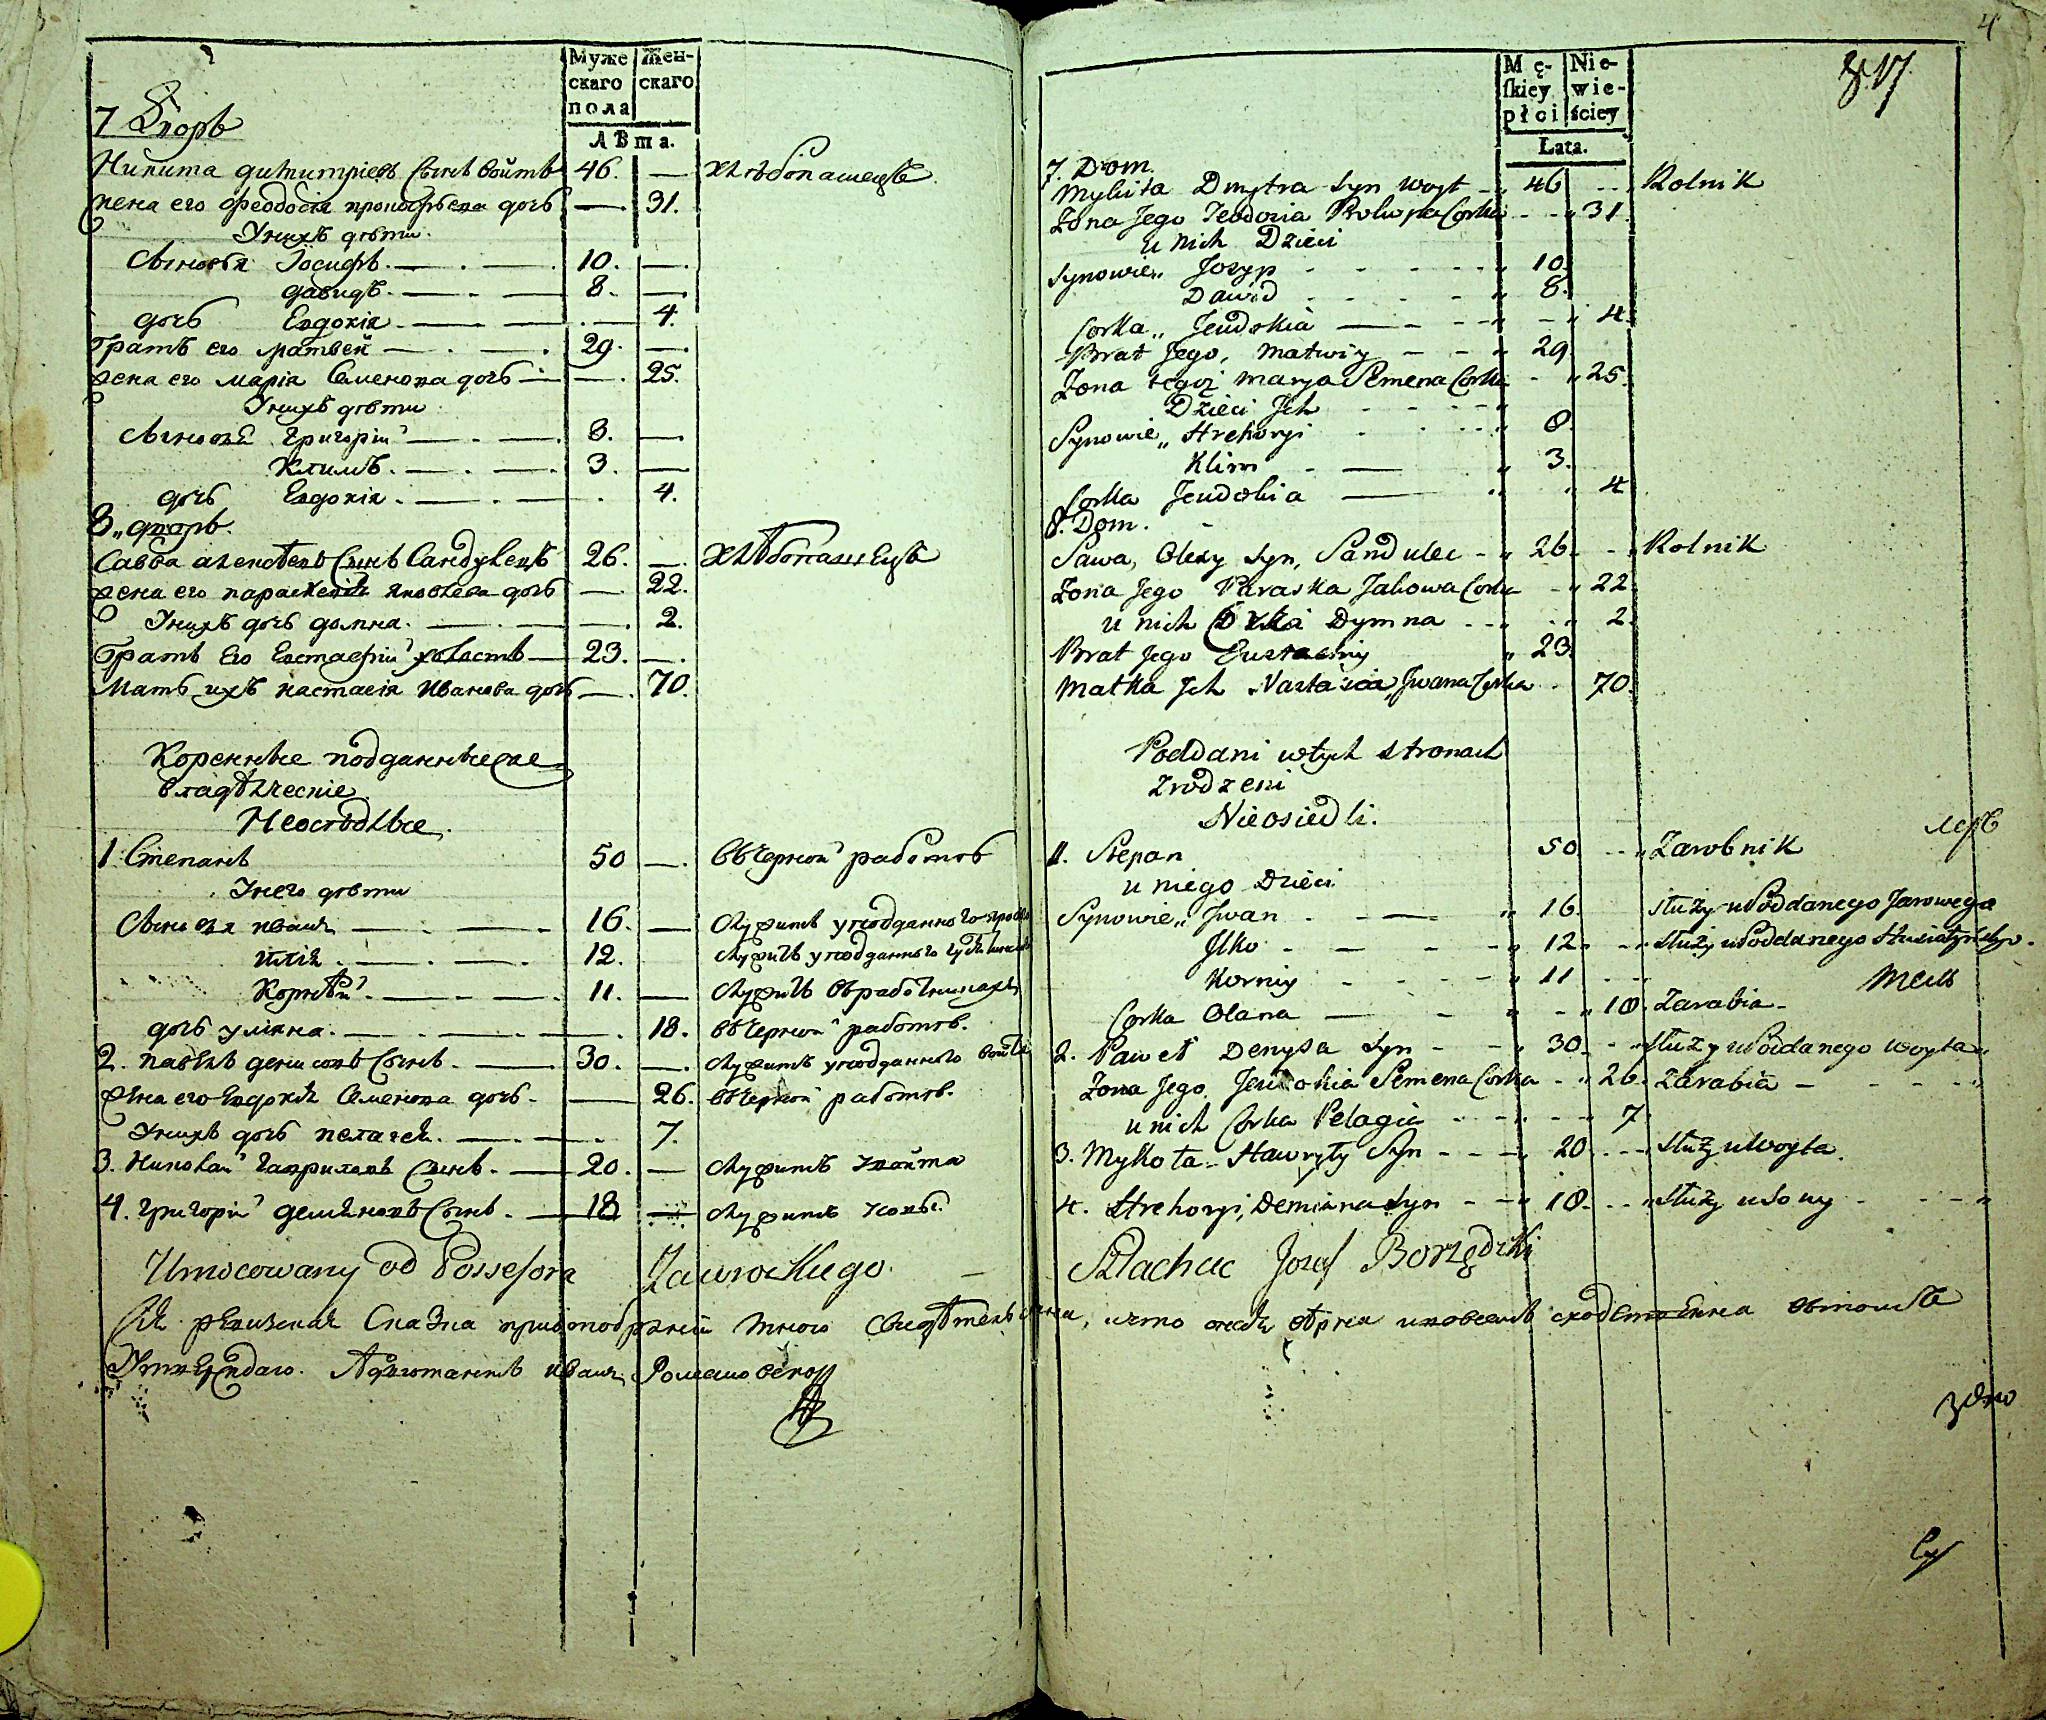 Муже
скаго
пола
Жен-
скаго
Лѣта.
7 Дворъ
Никита димитріевъ сынъ войтъ 46. — хлѣбопашецъ
жена его феодосія прокофѣева дочь — 31.
У нихъ дѣти
Сыновья Іосифъ. — 10. —
давидъ. — 8. —
дочь Евдокія — 4.
братъ его матвей — 29. —
жена его марія Семенова дочь — 25.
У нихъ дѣти
Сыновья григорій — 8. —
Климъ. — 3. —
дочь Евдокія. — 4.
8. дворъ.
Савва алексѣевъ сынъ Сандулецъ 26. — хлѣбопашецъ
жена его параскевія яковлева дочь — 22.
У нихъ дочь домна. — 2.
братъ его евстафій холостъ — 23. —
Мать ихъ настасія иванова дочь — 70.
Коренные подданные
владѣлческіе
Неоседлые.
1 Степанъ 50 — въ черной работѣ
У него дѣти
Сыновья иванъ — 16. — служитъ у подданного
илія — 12. служитъ у подданного
Корнѣй — 11. — служитъ въ работникахъ
дочь уліяна. — 18. въ черной работѣ.
2. павелъ денисовъ сынъ. — 30. — служитъ у подданного войта
жена его Евдокія Семенова дочь. — 26. въ черной работѣ.
У нихъ дочь пелагея. — 7.
3. Николай гавриловъ сынъ. — 20. — служитъ у войта
4. григорій демяновъ сынъ. — 18 — служитъ
Umocowany od Possesora Jaworskiego. — Szlachcic Jozef Borządzki
Сія ревизская сказка
Иванъ Романовский
4
Mę-
ſkiey
płci
Nie-
wie-
ściey
Lata.
7. Dom.
Mykita Dmytra Syn woyt 46 Rolnik
Zona Jego Teodozia Prokopa Corka 31.
u nich Dzieci
Synowie „ Jozyp 10.
Dawid 8.
Corka „ Jeudokia 4.
Brat Jego, Matwiy 29
Zona tegoż Marya Semena Corka 25.
Dzieci Jch
Synowie „ Hrehoryi 8.
Klim 3.
Corka Jeudokia 4
8. Dom.
Sawa, Olexy Syn, Sandulec 26. Rolnik
Zona Jego Paraska Jakowa Corka 22.
u nich Corka Dymna 2.
Brat Jego Eustachiy 23.
Matka Jch Nastazia, Jwana Corka 70.
Poddani w tych stronach
zrodzeni
Nieosiedli.
1. Stepan 50 Zarobnik
u niego Dzieci
Synowie „ Jwan 16. służy u Poddanego Jarowego
Jlko 12. służy u Poddanego
Korniy 11
Corka Olana 18. Zarabia
2. Paweł Denysa Syn 30. służy u Poddanego woyta
Zona Jego Jeudokia Semena Corka 26. Zarabia
u nich Corka Pelagia 7
3. Mykoła Hawryły Syn 20 służy u Woyta.
4. Hrehoryi, Demiana Syn 18. służy